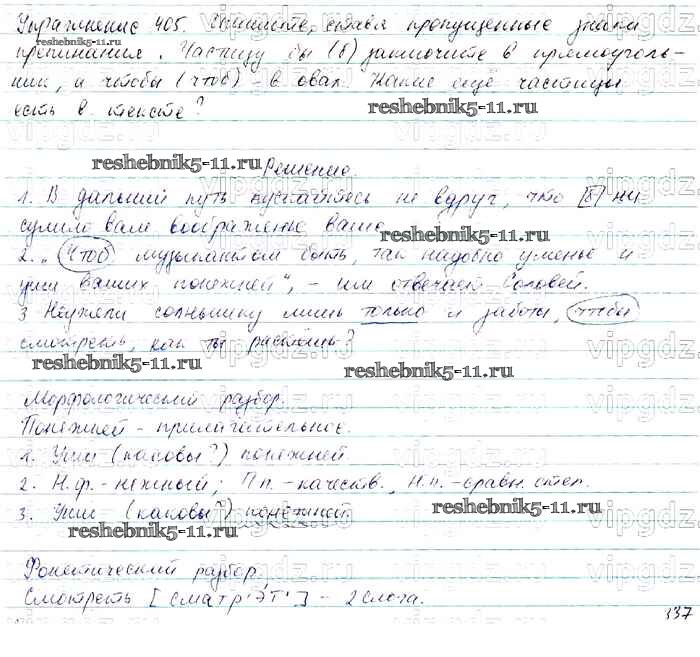 Упражнение 405. Спишите, ставя пропущенные знаки
препинания. Частицу бы (б) заключите в прямоуголь-
ник, а чтобы (чтоб) - в овал. Какие ещё частицы
есть в тексте?
reshebnik5-11.ru
reshebnik5-11.ru
Решение
1. В дальний путь пускайтесь не вдруг, что [б] ни
сулило вам воображенье ваше.
reshebnik5-11.ru
2. „Чтоб музыкантом быть, так надобно уменье и
уши ваших понежней", - им отвечает Соловей.
3 Неужели солнышку лишь только и заботы, чтобы
смотреть, как ты растёшь?
reshebnik5-11.ru
reshebnik5-11.ru
Морфологический разбор.
Понежней - прилагательное.
1. Уши (каковы?) понежней
2. Н.ф.-нежный; Пп.-качеств., Н.п.-сравн. степ.
3. Уши (каковы?) понежней.
reshebnik5-11.ru
reshebnik5-11.ru
Фонетический разбор.
Смотреть [сматр'эт'] - 2 слога.
337
vipgdz.ru